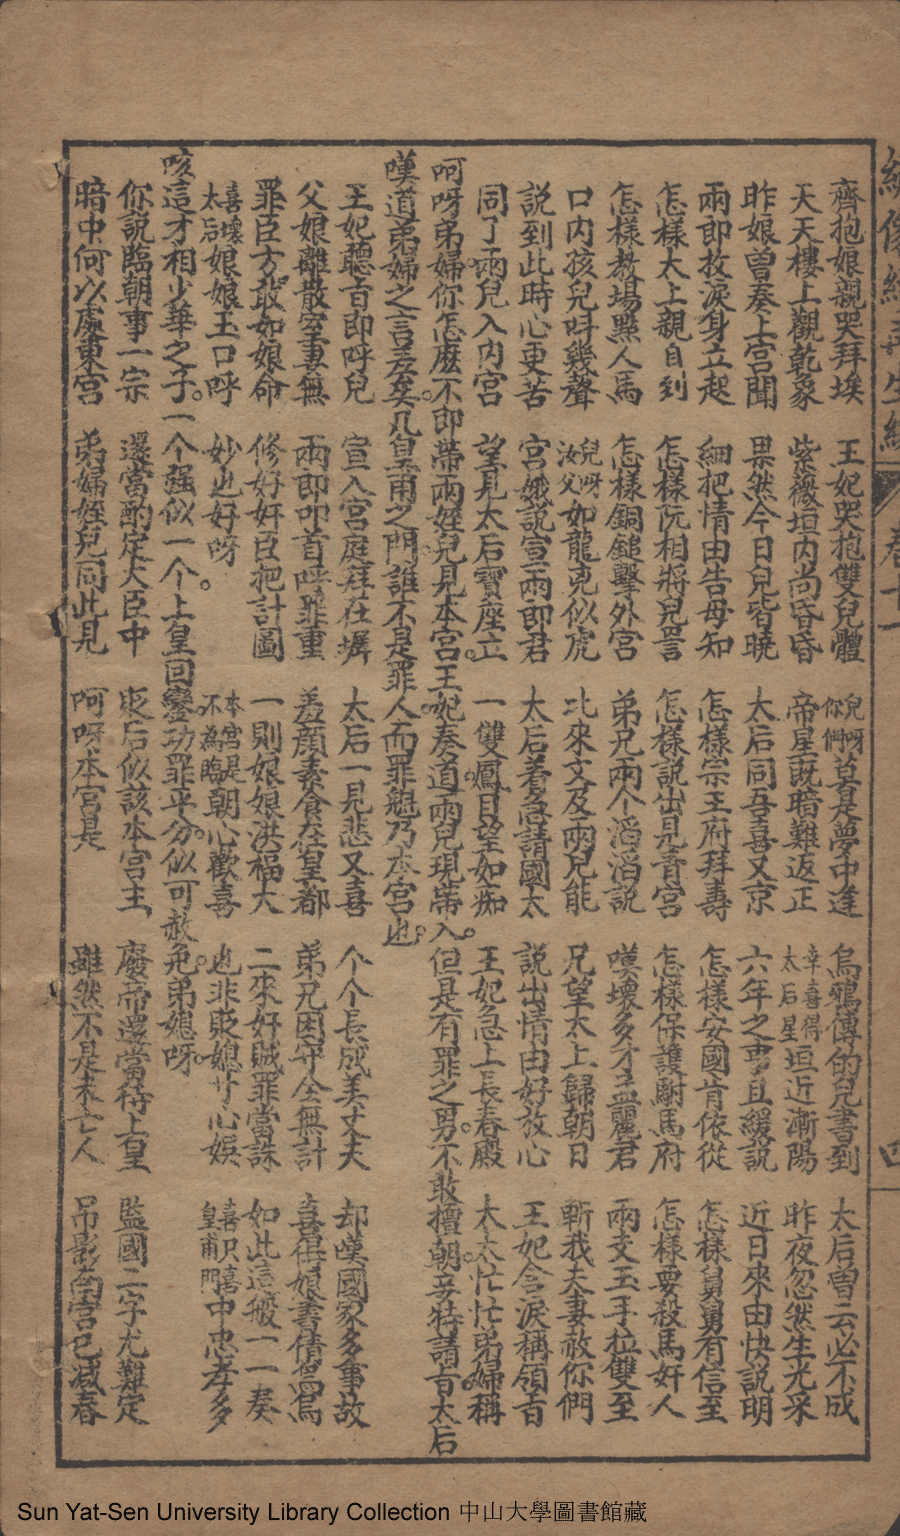 繡像繪 再生緣 卷十一 四
齊抱娘親哭拜埃 王妃哭抱雙兒體 兒呀你們莫是夢中逢 烏鴉傳的兒書到 太后曾云必不成
天天樓上觀乾象 紫薇垣內尚昏昏 帝星既暗難返正 幸喜得太后星垣近漸陽 昨夜忽然生光采
昨娘曾奏上宮聞 果然今日兒皆曉 太后同吾喜又京 六年之事且緩説 近日來由快説明
兩郎抆淚身立起 細把情由告母知 怎樣宗王府拜壽 怎樣安國肯依從 怎樣舅舅有信至
怎樣太上親自到 怎樣阮相將兒詈 怎樣説出見青宮 怎樣保護駙馬府 怎樣要殺馬奸人
怎樣教場㸃人馬 怎樣銅鎚擊外宮 弟兄兩个滔滔説 嘆壞多才孟麗君 兩支玉手拉雙至
口内孩兒呌幾聲 兒呀汝父如龍克似虎 比來文及兩兒能 兄望太上歸朝日 斬我夫妻赦你們
説到此時心更苦 宮娥説宣兩郎君 太后着急請國太 説出情由好放心 王妃含淚稱領旨
同了兩兒入内宮 望見太后寶座立 一雙鳳目望如痴 王妃急上長春殿 太太忙忙弟婦稱
呵呀弟婦。你怎麽不即帶兩姪兒見本宮。王妃奏道。兩兒現帶入。但是有罪之男。不敢擅朝。妾特請旨。太后
嘆道。弟婦之言差矣。凡皇甫之門。誰不是罪人。而罪魁乃本宮也。
王妃聽言即呼兒 宣入宮庭拜在墀 太后一見悲又喜 个个長成美丈夫 却嘆國家多事故
父娘離散室妻無 兩郎叩首呼罪重 羞顔素食在皇都 弟兄困守全無計 喜得娘書倩鳥
罪臣方敢如娘命 修好奸臣把計圖 一則娘娘洪福大 二來好賊罪當誅 如此這般一一奏
喜壞太后娘娘玉口呼 妙也好呀 本宮是不為臨朝心歡喜 也非貶媳廿心娛 喜只喜皇甫門中忠孝多
咳這才相少華之子。一个强似一个。上皇回鑾。功罪平分。似可赦免。弟媳呀。
你説臨朝事一宗 還當酌定大臣中 貶后似該本宮主 廢帝還當待上皇 監國二字尤難定
暗中何以處東宮 弟婦姪兒同此見 呵呀本宮是 雖然不是未亡人 吊影南宮已减春
Sun Yat-Sen University Library Collection 中山大學圖書館藏